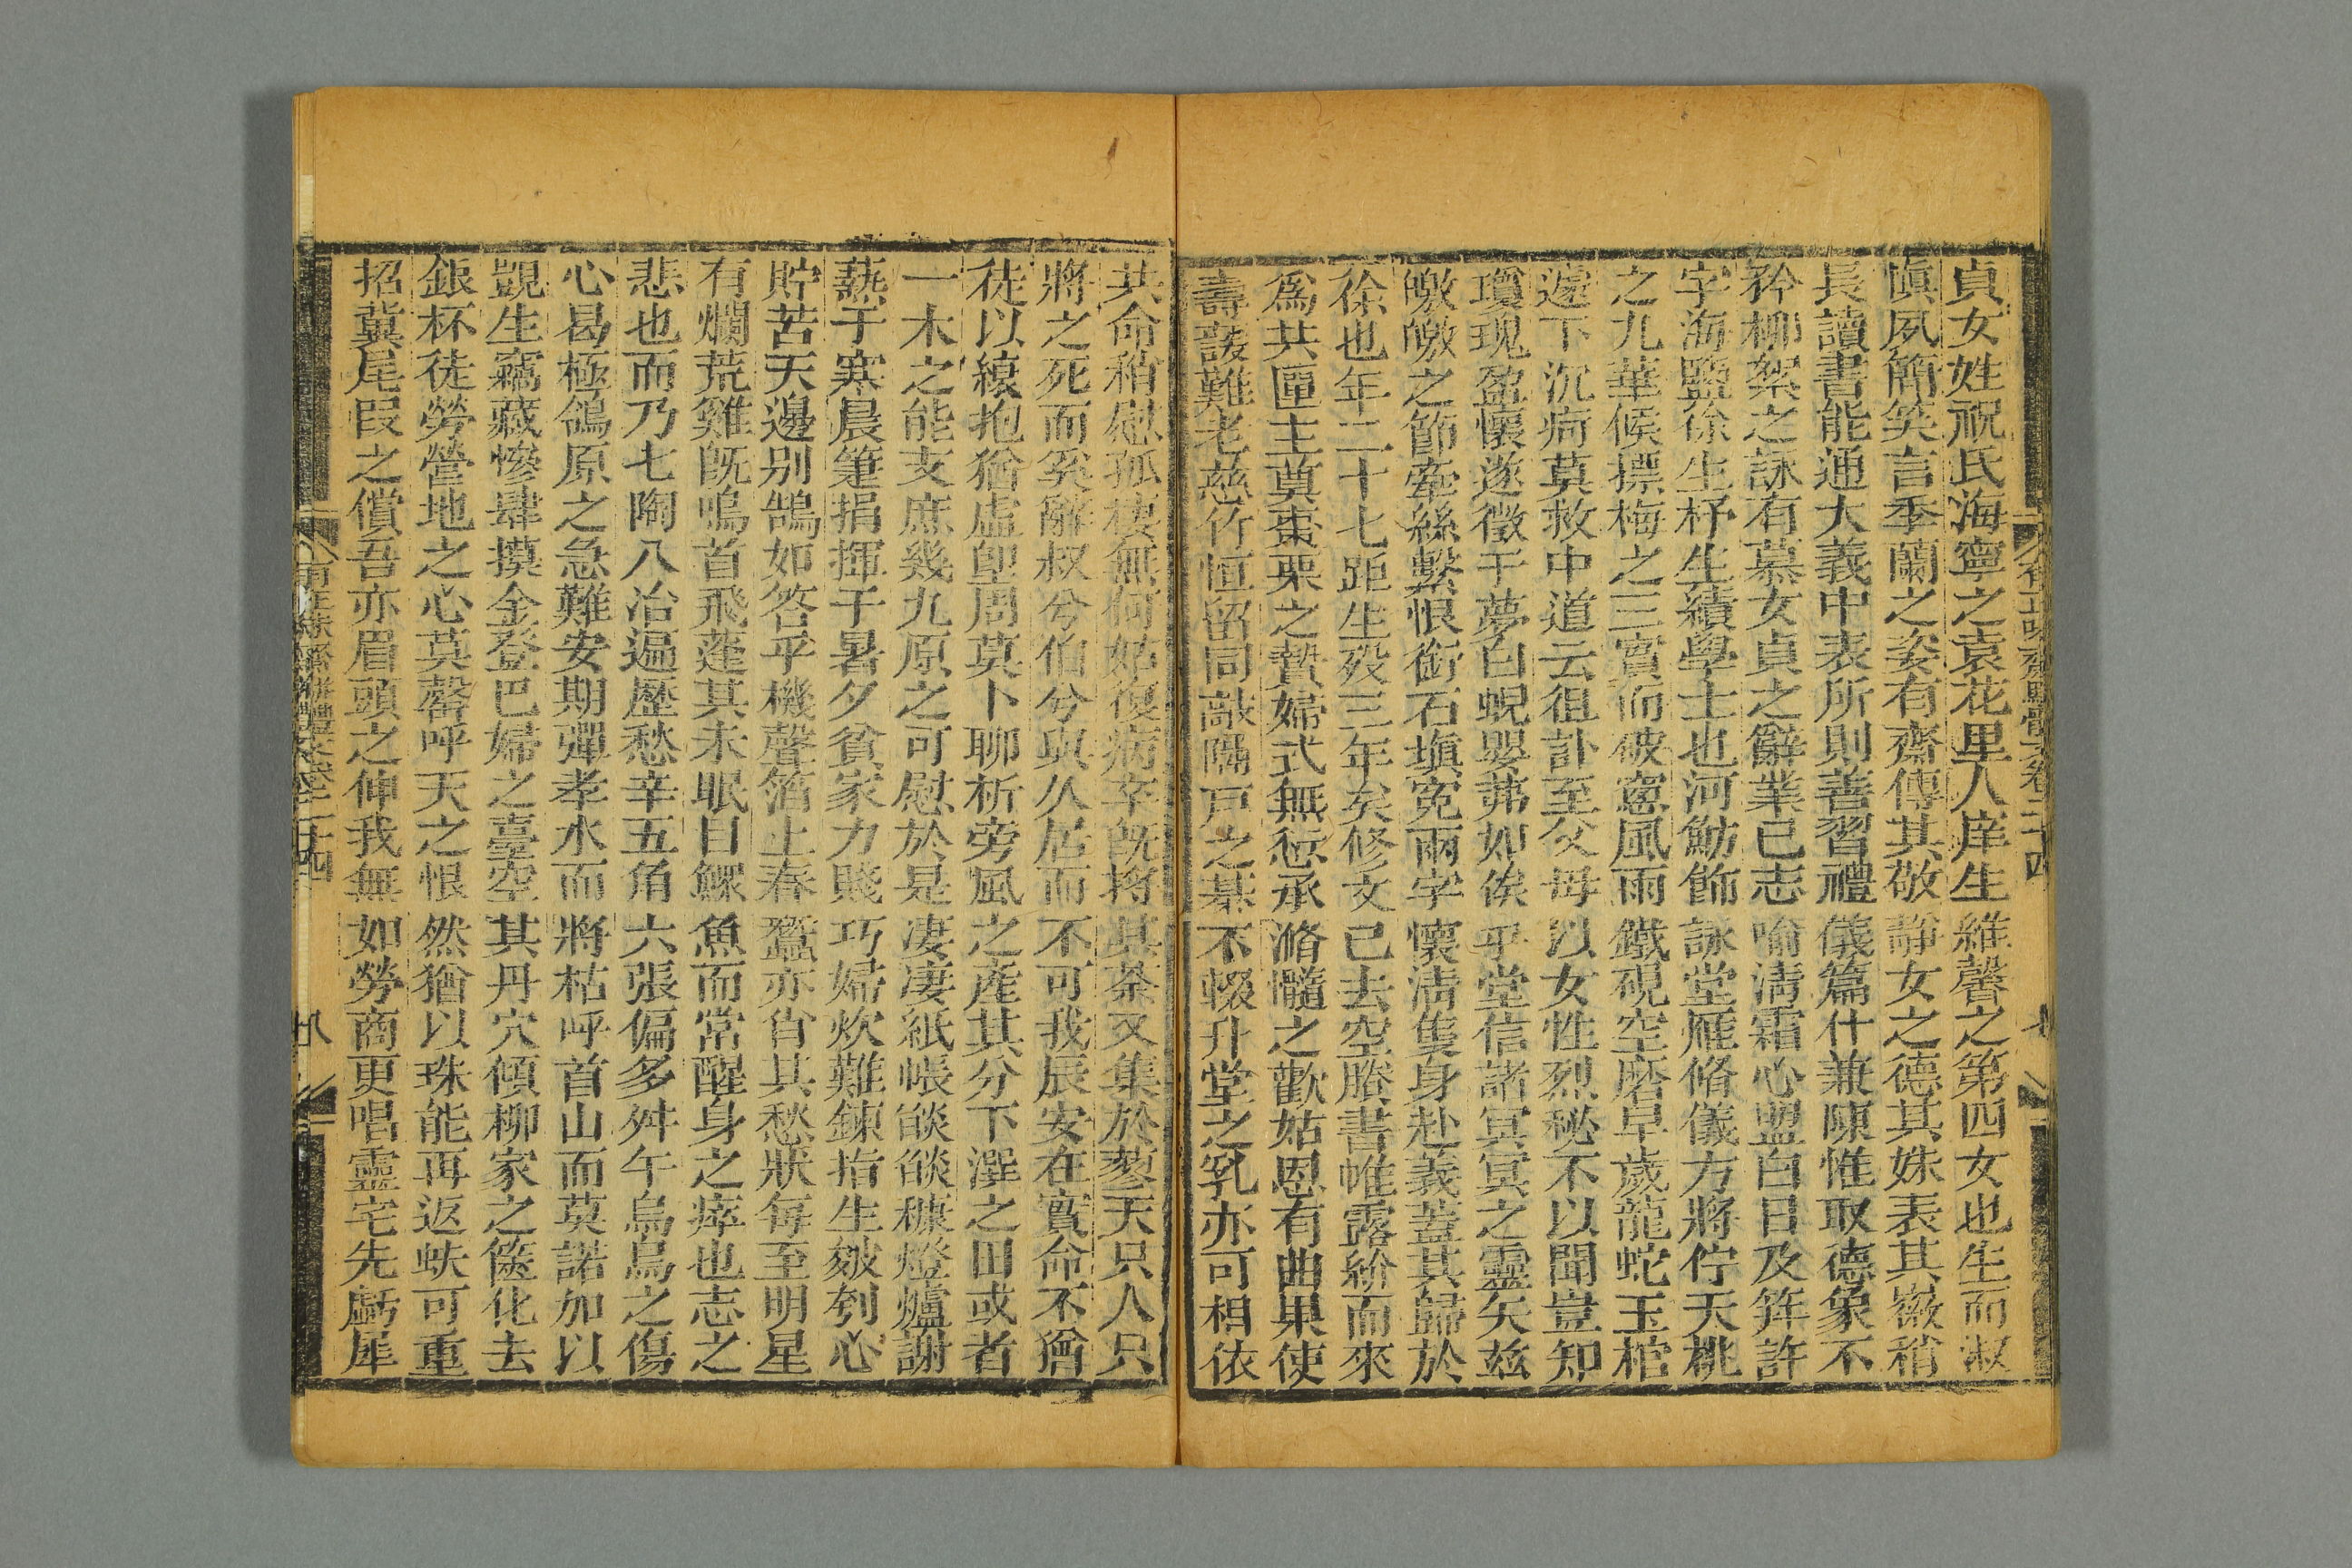 貞女姓祝氏海寧之袁花里人庠生維馨之第四女也生而淑
愼夙簡笑言季蘭之姿有齋傳其敬靜女之德其姝表其嶶稍
長讀書能通大義中表所則善習禮儀篇什兼陳惟取德象不
矜柳絮之詠有慕女貞之辭業已志喻淸霜心盟白日及筓許
字海鹽徐生杼生績學士也河魴飾詠堂雁脩儀方將佇夭桃
之九華候摽梅之三實而破窻風雨鐵硯空磨早歲龍蛇玉棺
遽下沉痾莫救中道云徂訃至父母以女性烈秘不以聞豈知
瓊瑰盈懷遂徵于夢白蜺嬰茀如俟乎堂信諸冥冥之靈矢茲
皦皦之節牽絲繫恨銜石塡寃兩字懷淸隻身赴義蓋其歸於
徐也年二十七距生歿三年矣修文已去空賸書帷露紒而來
爲共匰主奠棗栗之贄婦式無愆承滫髓之歡姑恩有曲果使
壽諼難老慈竹恒留同敲隔戶之棊不輟升堂之乳亦可相依
共命稍慰孤棲無何姑復病卒旣搘其荼又集於蓼天只人只
將之死而奚辭叔兮伯兮與久居而不可我辰安在實命不猶
徒以繐抱猶虛望周莫卜聊析旁風之產其分下潠之田或者
一木之能支庶幾九原之可慰於是淒淒紙帳餤餤糠燈爐謝
爇于寒晨箑捐揮于暑夕貧家力賤巧婦炊難鍊指生皴刳心
貯苦天邊別鵠如答乎機聲箔上春蠶亦肖其愁狀每至明星
有爛荒雞旣鳴首飛蓬其未眠目鰥魚而常醒身之瘁也志之
悲也而乃七陶八冶遍歷愁辛五角六張偏多舛午烏烏之傷
心曷極鴒原之急難安期彈孝水而將枯呼首山而莫諾加以
覬生竊藏慘肆摸金登巴婦之臺空其丹穴傾柳家之篋化去
銀杯徒勞營地之心莫罄呼天之恨然猶以珠能再返蚨可重
招冀尾叚之償吾亦眉頭之伸我無如勞商更唱靈宅先虧犀